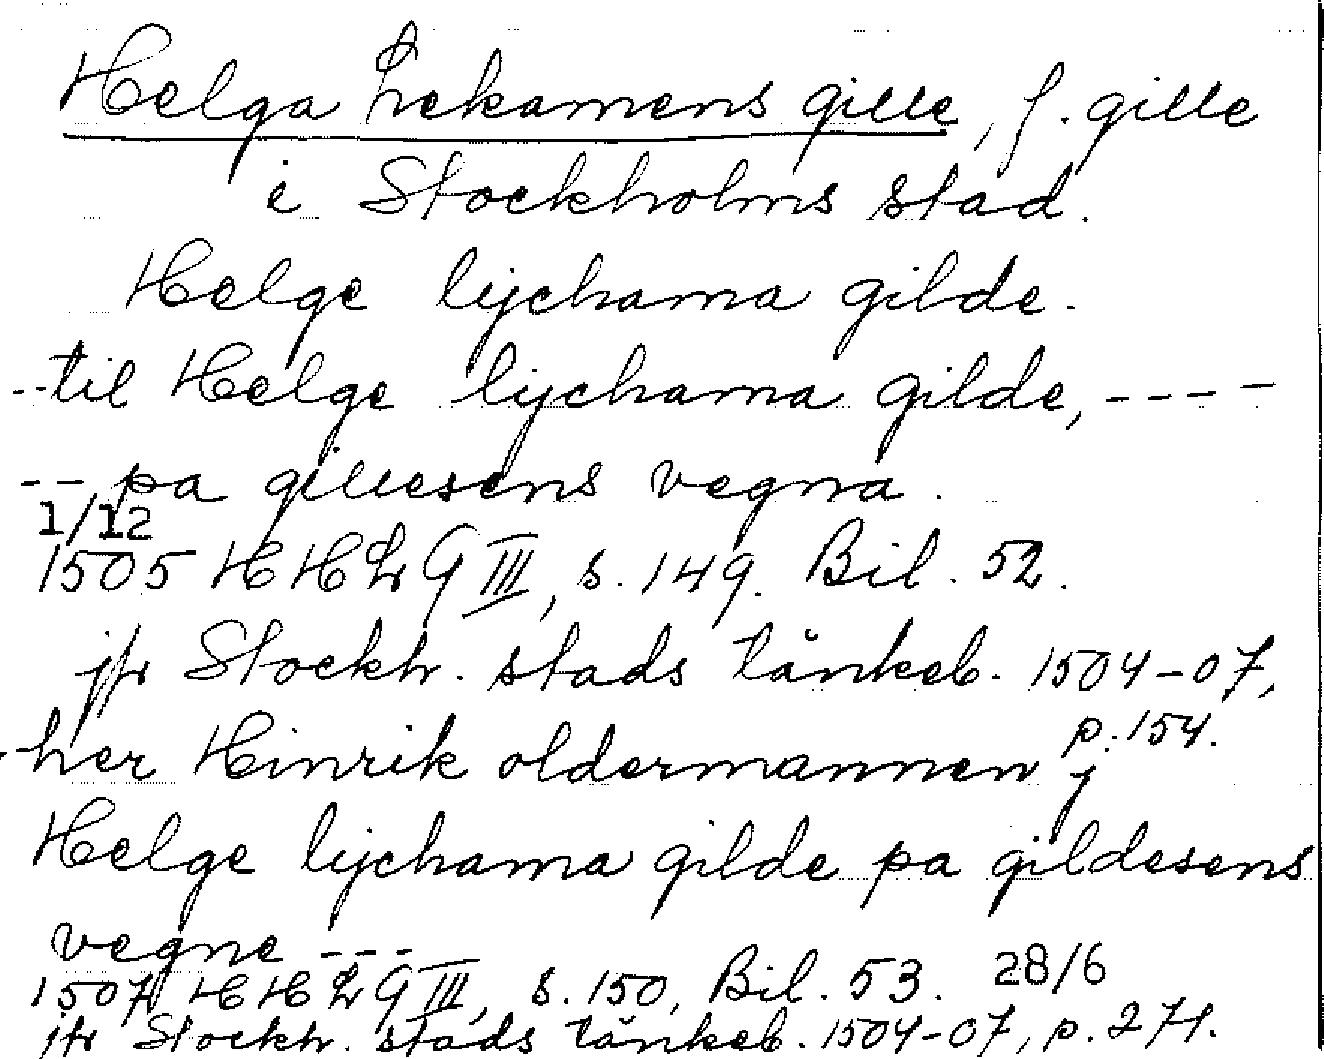 Helga Lekamens gille, f. gille
i Stockholms stad.
Helge lijchama gilde.
--til Helge lijchama gilde, ----
-- pa gillesens vegna.
1/12
1505 HHLG III, s. 149. Bil. 52.
jfr Stockh. stads tänkeb. 1504-07,
p. 154.
-her Hinrik oldermannen j
Helge lijchama gilde pa gildesens
vegne ---
1507 HHLG III, s. 150, Bil. 53. 28/6
jfr Stockh. stads tänkeb. 1504-07, p. 271.